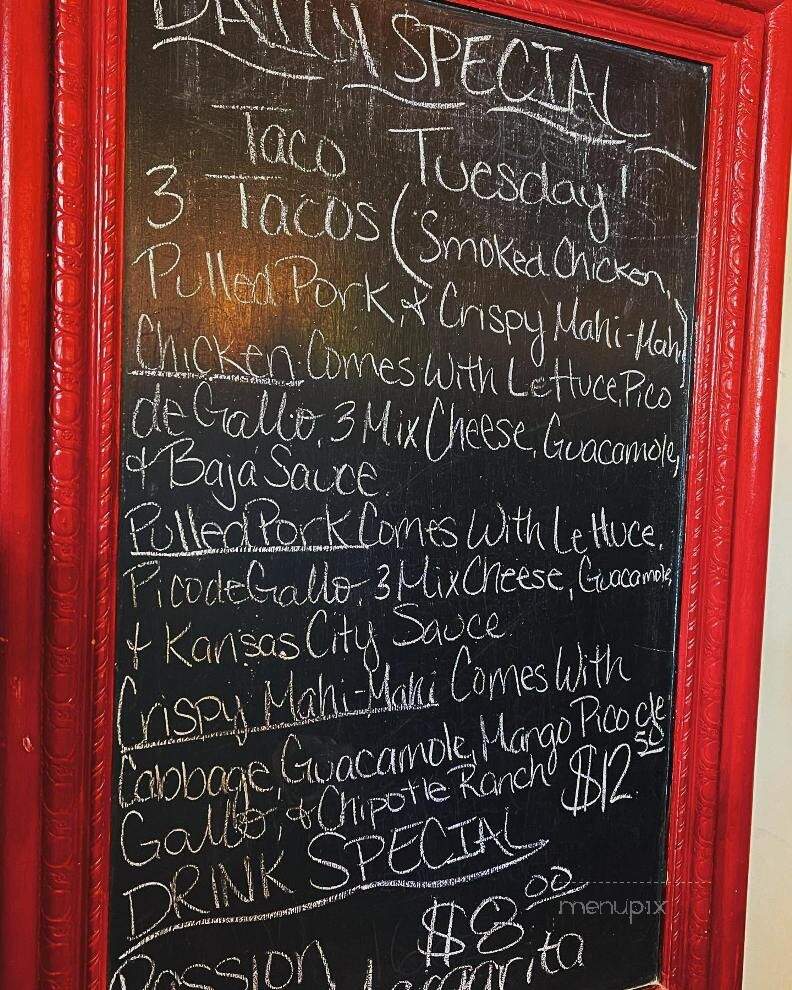 DAILY SPECIAL
Taco Tuesday!
3 Tacos (Smoked Chicken,
Pulled Pork, & Crispy Mahi-Mahi)
Chicken Comes With Lettuce, Pico
de Gallo, 3 Mix Cheese, Guacamole,
& Baja Sauce.
Pulled Pork Comes With Lettuce,
Pico de Gallo, 3 Mix Cheese, Guacamole,
& Kansas City Sauce
Crispy Mahi-Mahi Comes With
Cabbage, Guacamole, Mango Pico de
Gallo, & Chipotle Ranch $12.50
DRINK SPECIAL
$8.00
Passion Margarita
menupix